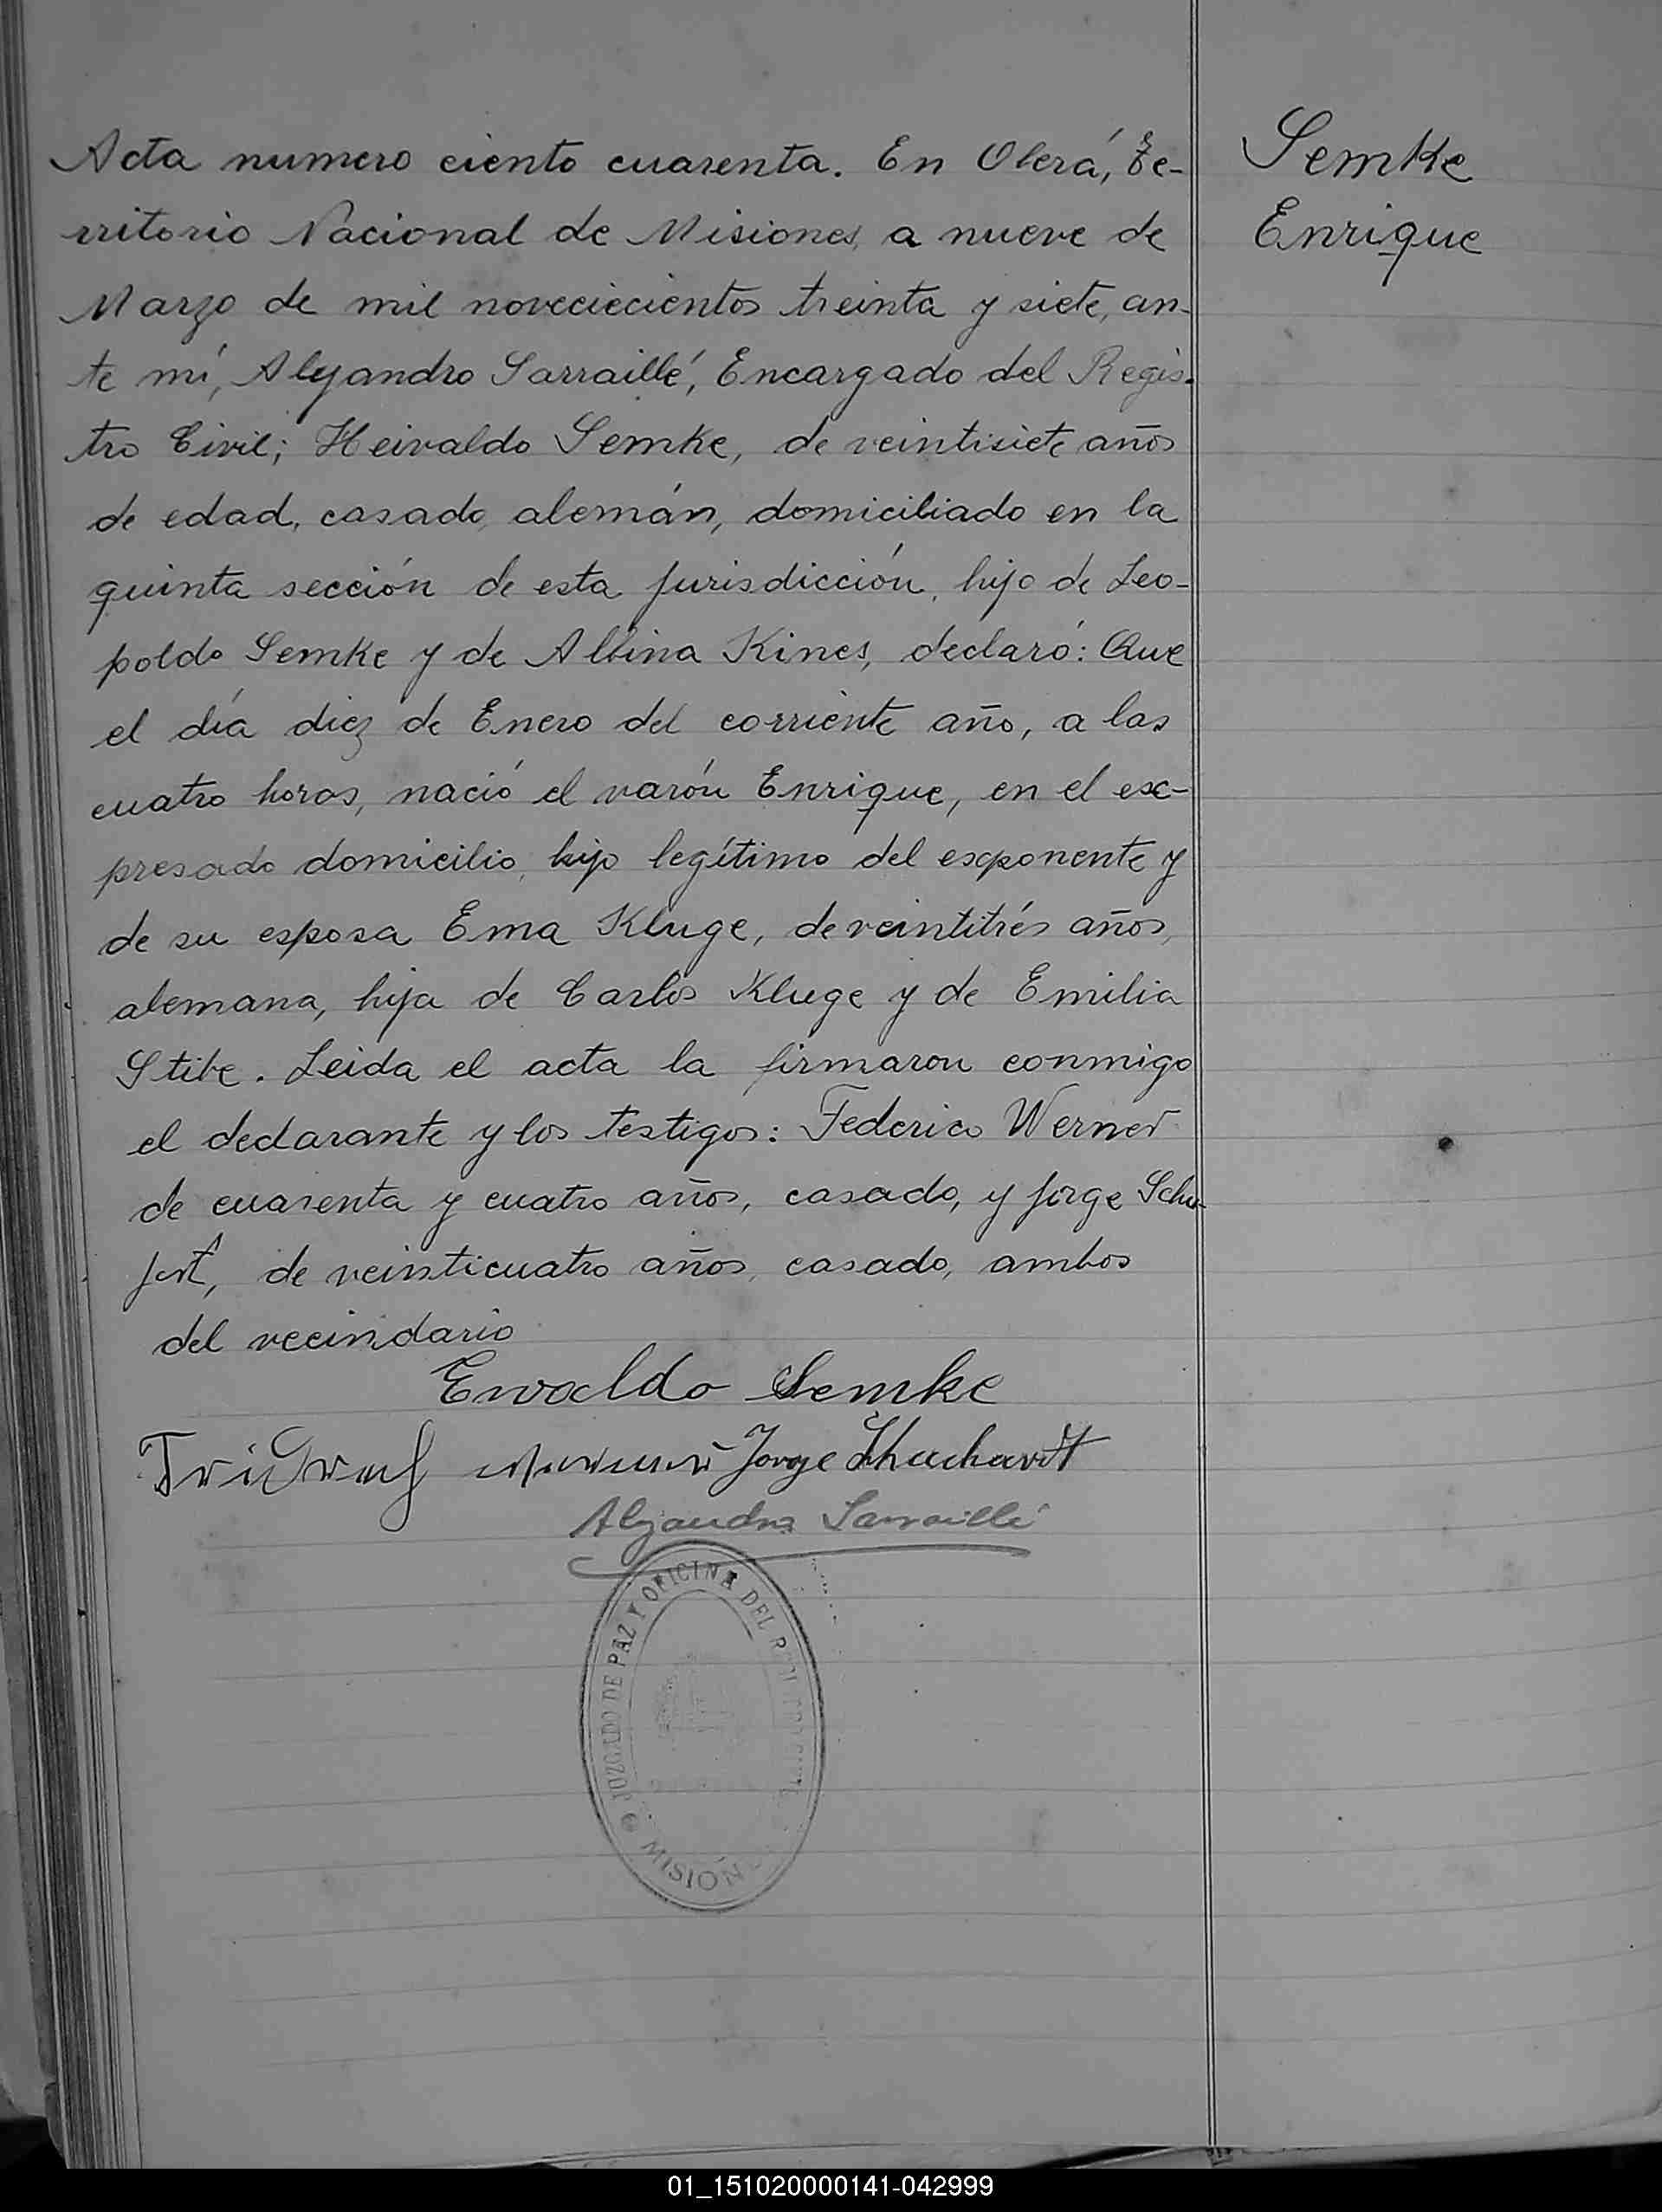 Acta numero ciento cuarenta. En Oberá, Te-
rritorio Nacional de Misiones, a nueve de
Marzo de mil noveciecientos treinta y siete, an-
te mí, Alejandro Sarraillé, Encargado del Regis-
tro Civil; Heivaldo Semke, de veintisiete años
de edad, casado, alemán, domiciliado en la
quinta sección de esta jurisdicción, hijo de Leo-
poldo Semke y de Albina Kines, declaró: Que
el día diez de Enero del corriente año, a las
cuatro horas, nació el varón Enrique, en el ex-
presado domicilio, hijo legítimo del exponente y
de su esposa Ema Kluge, de veintitrés años,
alemana, hija de Carlos Kluge y de Emilia
Stibe. Leida el acta la firmaron conmigo
el declarante y los testigos: Federico Werner
de cuarenta y cuatro años, casado, y Jorge Schu-
jart, de veinticuatro años, casado, ambos
del vecindario
Semke
Enrique
Ewaldo Semke
Jorge
Alejandro Sarraillé
JUZGADO DE PAZ Y OFICINA DEL
MISION
01_151020000141-042999